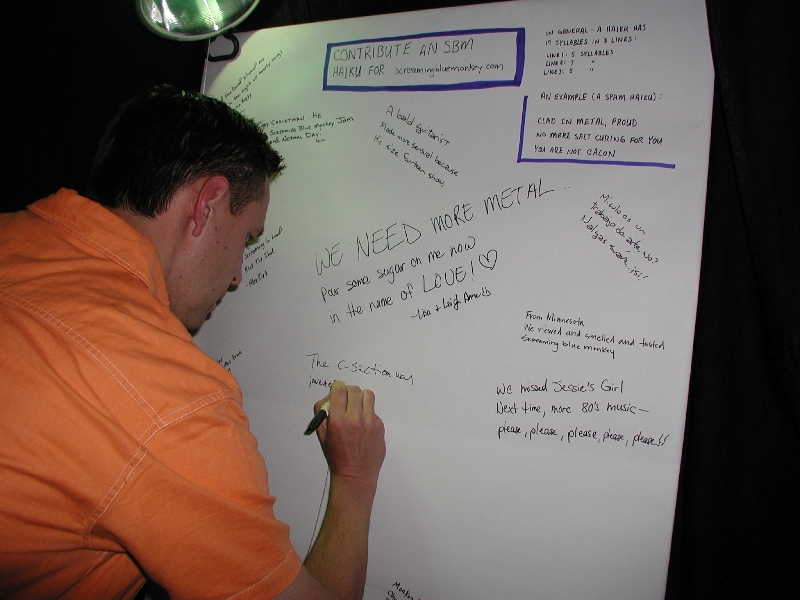 CONTRIBUTE AN SBM
HAIKU FOR screamingbluemonkey.com
IN GENERAL - A HAIKU HAS
17 SYLLABLES IN 3 LINES:
LINE 1: 5 SYLLABLES
LINE 2: 7 "
LINE 3: 5 "
AN EXAMPLE (A SPAM HAIKU):
CLAD IN METAL, PROUD
NO MERE SALT CURING FOR YOU
YOU ARE NOT BACON
CHRISTMAN HE
Screaming Blue Monkey Jams
Day.
A bald guitarist
Made more sensual because
His size fourteen shoes
WE NEED MORE METAL...
pour some sugar on me now
in the name of LOVE! ♡
trabajo de arte, No?
From Minnesota
We viewed and smelled and tasted
Screaming blue monkey
We missed Jessie's Girl
Next time, more 80's music—
please, please, please, please, please!!
The C-Section was